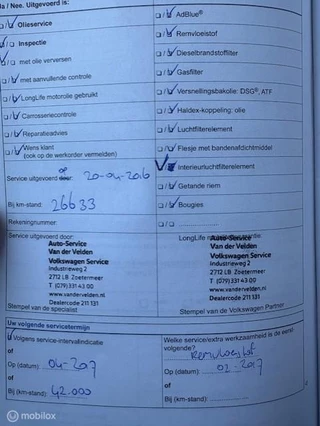 Ja / Nee. Uitgevoerd is:
Olieservice
Inspectie
met olie verversen
met aanvullende controle
LongLife motorolie gebruikt
Carrosseriecontrole
Reparatieadvies
Wens klant
(ook op de werkorder vermelden)
Service uitgevoerd door: op 20-04-2016
Bij km-stand: 26633
Rekeningnummer:
Service uitgevoerd door:
Auto-Service
Van der Velden
Volkswagen Service
Industrieweg 2
2712 LB Zoetermeer
T (079) 331 43 00
www.vandervelden.nl
Dealercode 211 131
Stempel van de specialist
AdBlue®
Remvloeistof
Dieselbrandstoffilter
Gasfilter
Versnellingsbakolie: DSG®, ATF
Haldex-koppeling: olie
Luchtfilterelement
Flesje met bandenafdichtmiddel
Interieurluchtfilterelement
Getande riem
Bougies
LongLife
Auto-Service
Van der Velden
Volkswagen Service
Industrieweg 2
2712 LB Zoetermeer
T (079) 331 43 00
www.vandervelden.nl
Dealercode 211 131
Stempel van de Volkswagen Partner
Uw volgende servicetermijn
Volgens service-intervalindicatie
of
Op (datum): 04-207
of
Bij (km-stand): 42.000
Welke service/extra werkzaamheid is de eerst
volgende? Remvloeistof
Op (datum): 02-2017
of
Bij (km-stand):
mobilox